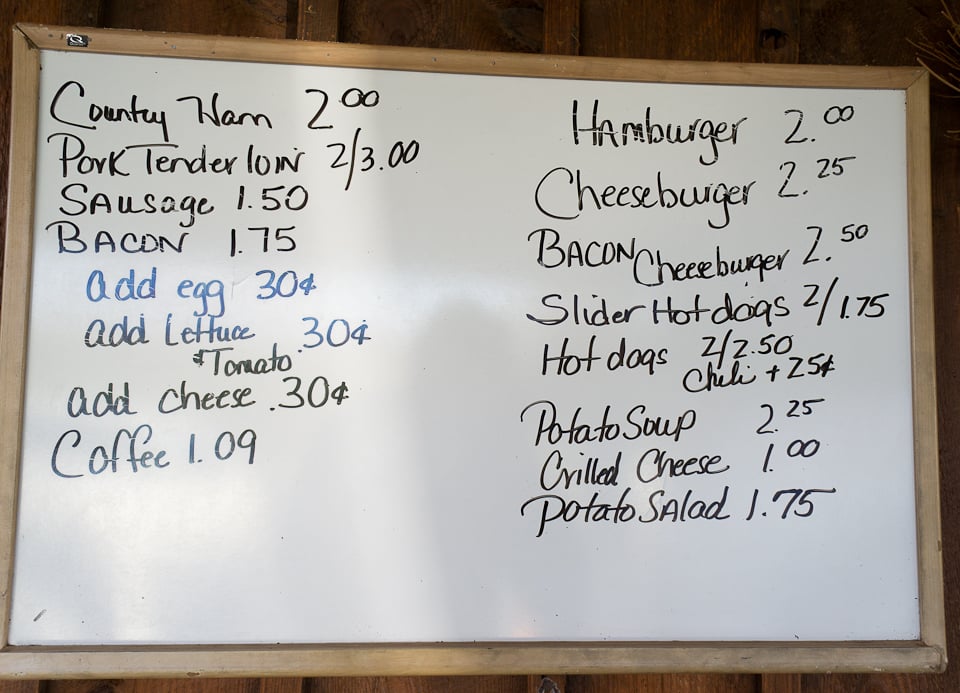 Country Ham 2.00
Pork Tenderloin 2/3.00
Sausage 1.50
BACON 1.75
add egg 30¢
add Lettuce .30¢
& Tomato
add cheese .30¢
Coffee 1.09
HAmburger 2.00
Cheeseburger 2.25
BACON Cheeseburger 2.50
Slider Hot dogs 2/1.75
Hot dogs 2/2.50
Chili + 25¢
Potato Soup 2.25
Grilled Cheese 1.00
Potato SAlad 1.75